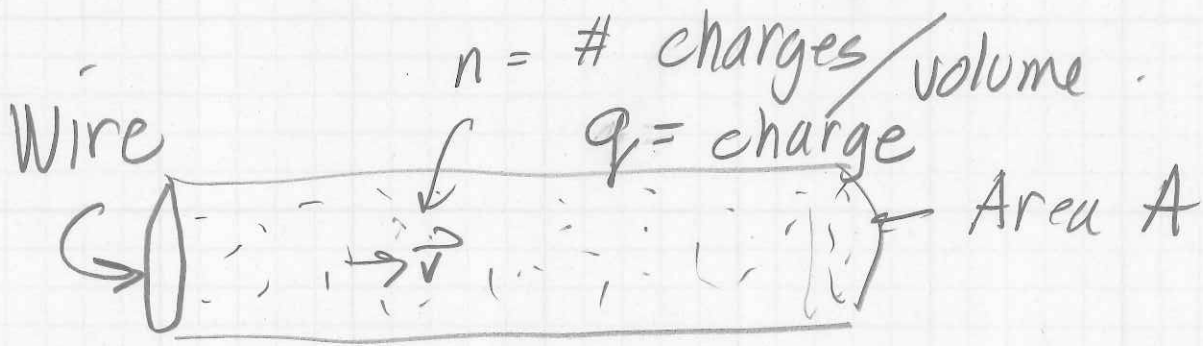 n = # charges/volume
Wire
q = charge
Area A
v⃗